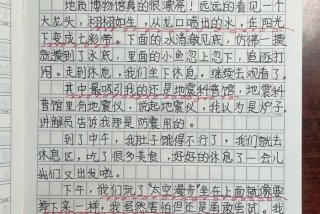 地质博物馆真的很漂亮！远远的看见一个
大龙头，栩栩如生，从龙口喷出的水，在阳光
下变成七彩带。下面的水清澈见底，仿佛一摸
就摸到了水底，里面的小鱼忽上忽下，追逐打
闹。走到休息，我们坐下休息，继续去观看了。
其中最吸引我的还是地震科普馆，地震科
普馆里有地震仪，说起地震仪，我以为是炉子，
讲解员告诉我那是防震用的。
到了中午，我肚子饿得不行了！我们就去
休息区，吃了很多美食，好好的休息了一会儿
我们又出发啦。
下午，我们玩了“太空漫步”坐在上面就像要
掉下来一样，我虽然害怕但还是勇敢尝试，我